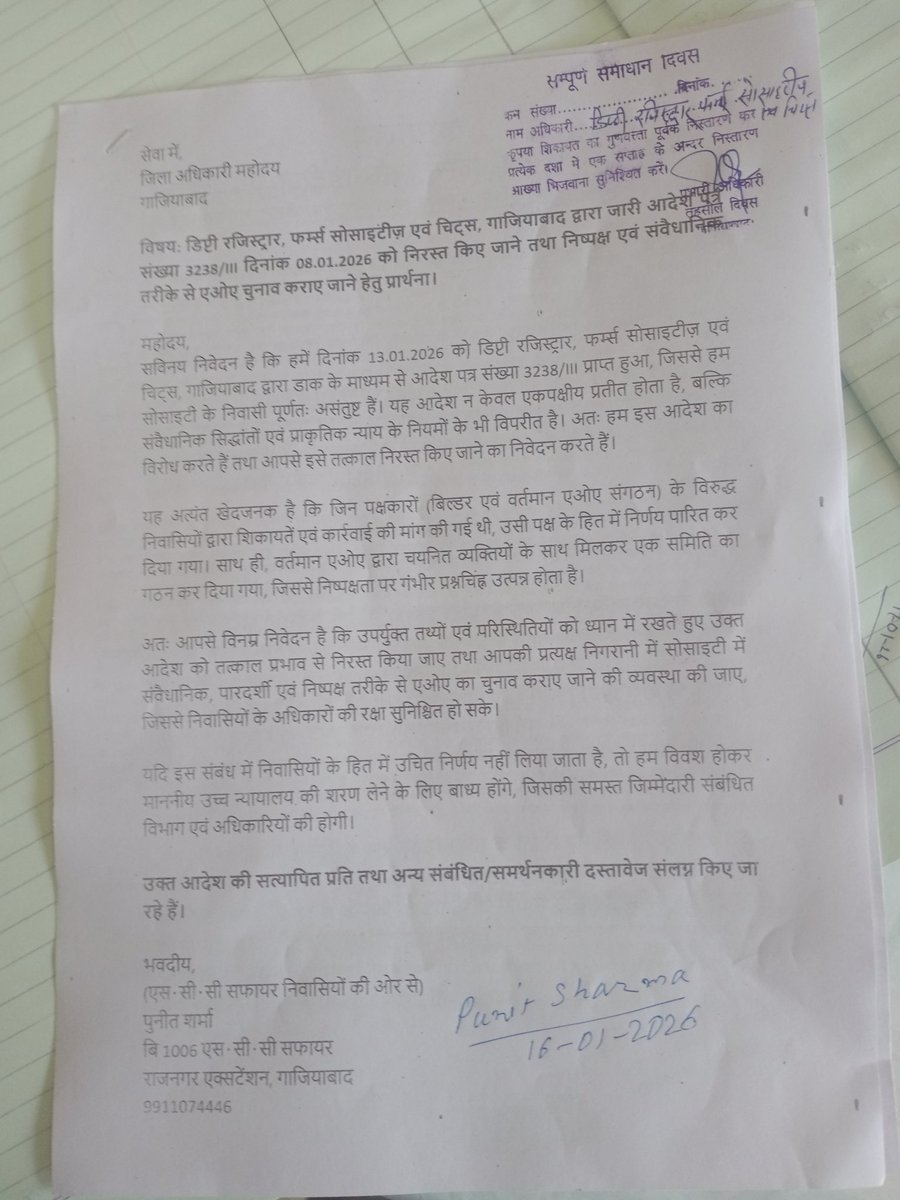 सम्पूर्ण समाधान दिवस
क्रम संख्या.......................दिनांक.
नाम अधिकारी....डिप्टी रजिस्ट्रार फर्म सोसाइटीज
कृपया शिकायत का गुणवत्ता पूर्वक निस्तारण कर
प्रत्येक दशा में एक सप्ताह के अन्दर निस्तारण
आख्या भिजवाना सुनिश्चित करें।
प्रभारी अधिकारी
तहसील दिवस
सेवा में,
जिला अधिकारी महोदय
गाजियाबाद
विषय: डिप्टी रजिस्ट्रार, फर्म्स सोसाइटीज़ एवं चिट्स, गाजियाबाद द्वारा जारी आदेश पत्र
संख्या 3238/III दिनांक 08.01.2026 को निरस्त किए जाने तथा निष्पक्ष एवं संवैधानिक
तरीके से एओए चुनाव कराए जाने हेतु प्रार्थना।
महोदय,
सविनय निवेदन है कि हमें दिनांक 13.01.2026 को डिप्टी रजिस्ट्रार, फर्म्स सोसाइटीज़ एवं
चिट्स, गाजियाबाद द्वारा डाक के माध्यम से आदेश पत्र संख्या 3238/III प्राप्त हुआ, जिससे हम
सोसाइटी के निवासी पूर्णतः असंतुष्ट हैं। यह आदेश न केवल एकपक्षीय प्रतीत होता है, बल्कि
संवैधानिक सिद्धांतों एवं प्राकृतिक न्याय के नियमों के भी विपरीत है। अतः हम इस आदेश का
विरोध करते हैं तथा आपसे इसे तत्काल निरस्त किए जाने का निवेदन करते हैं।
यह अत्यंत खेदजनक है कि जिन पक्षकारों (बिल्डर एवं वर्तमान एओए संगठन) के विरुद्ध
निवासियों द्वारा शिकायतें एवं कार्रवाई की मांग की गई थी, उसी पक्ष के हित में निर्णय पारित कर
दिया गया। साथ ही, वर्तमान एओए द्वारा चयनित व्यक्तियों के साथ मिलकर एक समिति का
गठन कर दिया गया, जिससे निष्पक्षता पर गंभीर प्रश्नचिह्न उत्पन्न होता है।
अतः आपसे विनम्र निवेदन है कि उपर्युक्त तथ्यों एवं परिस्थितियों को ध्यान में रखते हुए उक्त
आदेश को तत्काल प्रभाव से निरस्त किया जाए तथा आपकी प्रत्यक्ष निगरानी में सोसाइटी में
संवैधानिक, पारदर्शी एवं निष्पक्ष तरीके से एओए का चुनाव कराए जाने की व्यवस्था की जाए,
जिससे निवासियों के अधिकारों की रक्षा सुनिश्चित हो सके।
यदि इस संबंध में निवासियों के हित में उचित निर्णय नहीं लिया जाता है, तो हम विवश होकर
माननीय उच्च न्यायालय की शरण लेने के लिए बाध्य होंगे, जिसकी समस्त जिम्मेदारी संबंधित
विभाग एवं अधिकारियों की होगी।
उक्त आदेश की सत्यापित प्रति तथा अन्य संबंधित/समर्थनकारी दस्तावेज संलग्न किए जा
रहे हैं।
भवदीय,
(एस॰सी॰सी सफायर निवासियों की ओर से)
पुनीत शर्मा
बि 1006 एस॰सी॰सी सफायर
राजनगर एक्सटेंशन, गाजियाबाद
9911074446
Punit Sharma
16-01-2026